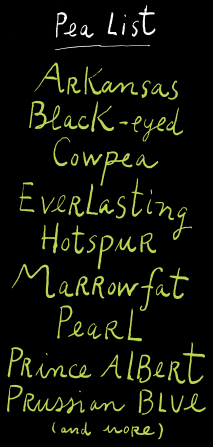 Pea List
Arkansas
Black-eyed
Cowpea
Everlasting
Hotspur
Marrowfat
Pearl
Prince Albert
Prussian Blue
(and more)